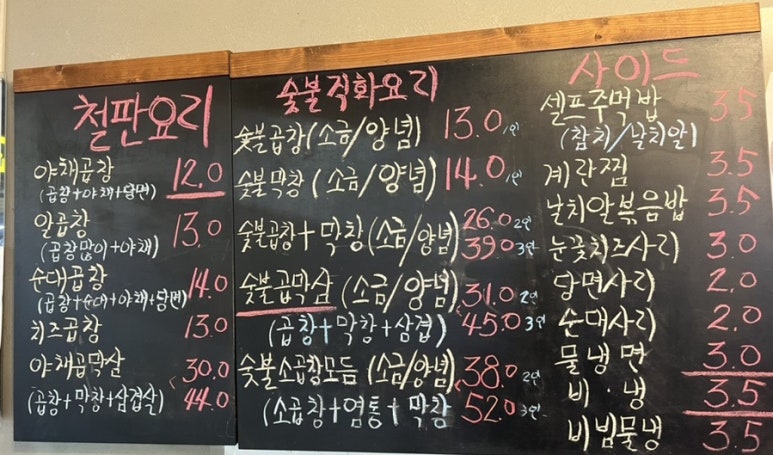 철판요리
야채곱창 12.0
(곱창+야채+당면)
알곱창 13.0
(곱창많이+야채)
순대곱창 14.0
(곱창+순대+야채+당면)
치즈곱창 13.0
야채곱막살 30.0
(곱창+막창+삼겹살) 44.0
숯불직화요리
숯불곱창(소금/양념) 13.0 /인
숯불막창 (소금/양념) 14.0 /인
숯불곱창+막창(소금/양념) 26.0 2인
39.0 3인
숯불곱막삼 (소금/양념) 31.0 2인
(곱창+막창+삼겹) 45.0 3인
숯불소곱창모듬 (소금/양념) 38.0 2인
(소곱창+염통+막창) 52.0 3인
사이드
셀프주먹밥 3.5
(참치/날치알)
계란찜 3.5
날치알볶음밥 3.5
눈꽃치즈사리 3.0
당면사리 2.0
순대사리 2.0
물냉면 3.0
비.냉 3.5
비빔물냉 3.5